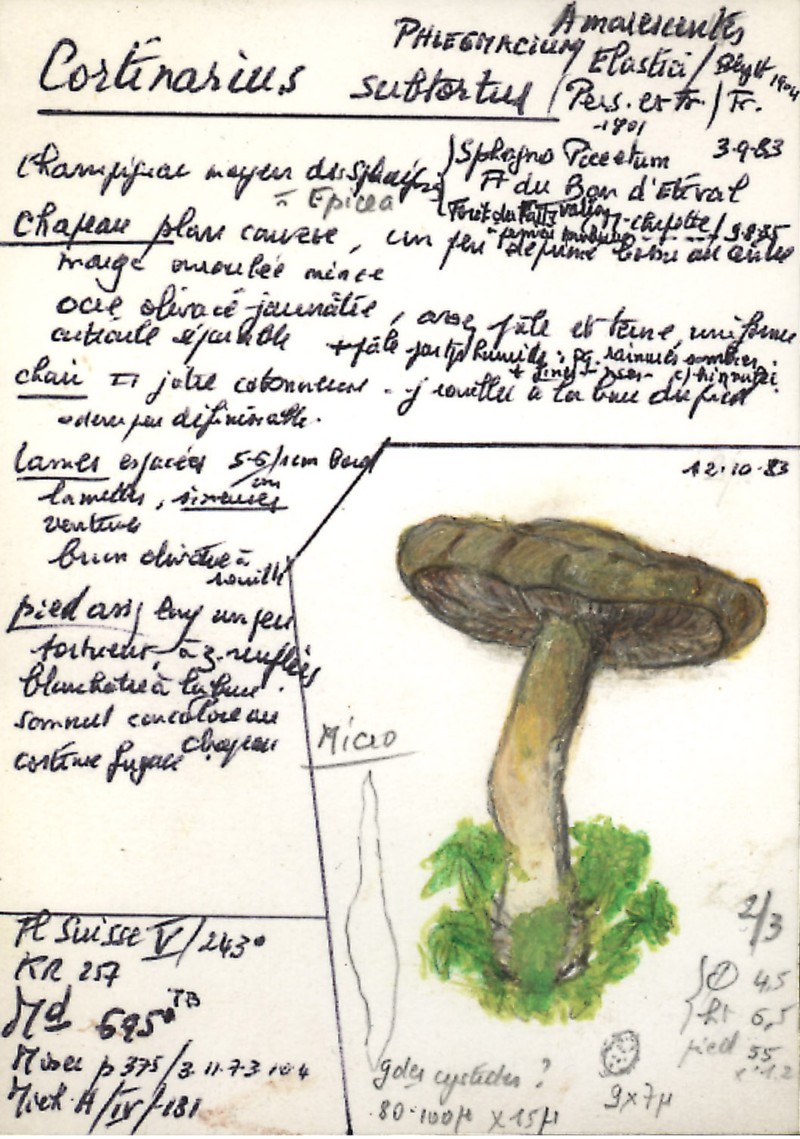 Cortinarius subtortus
PHLEGMACIUM
Amarescentes
Elastici / 1904
Pers. ex Fr. / Fr.
1801
3-9-83
Champignon moyen des
à Epicea
Sphagno Piceetum
du Bon d'Etéval
Forêt du
9.8.85
Chapeau plan convexe, un peu déprimé au centre
marge enroulée mince
ocre olivacé jaunâtre, assez pâle et terne, uniforme
cuticule séparable
+ pâle humide :
chair jâtre cotonneuse - j rouille à la base du pied
odeur peu définissable.
lames espacées 5-6/1cm Bord
lamelles, sinuées
ventrue
brun olivâtre à
rouille
pied assez long un peu
tortueux à renflé
blanchâtre à la base.
sommet concolore au
chapeau
cortine fugace
12-10-83
Micro
Fl Suisse V/243°
KR 257
Md 695° TB
Moser p 375 / 3.11.7.3.10.4
Mich. H/IV/-181
gdes cystides ?
80-100µ x 15µ
9x7µ
2/3
4,5
ht 6,5
pied 55
x 1.2